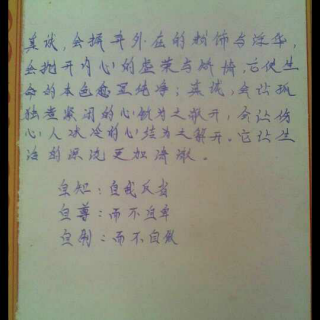 真诚，会摒弃外在的粉饰与浮华，
会抛开内心的虚荣与娇饰。它使生
命的本色愈显纯净；真诚，会让孤
独或紧闭的心敞为之敞开，会让伤
心人冰冷的心结为之解开。它让生
活的溪流更加清澈。
自知：自我反省
自尊：而不自卑
自制：而不自欺